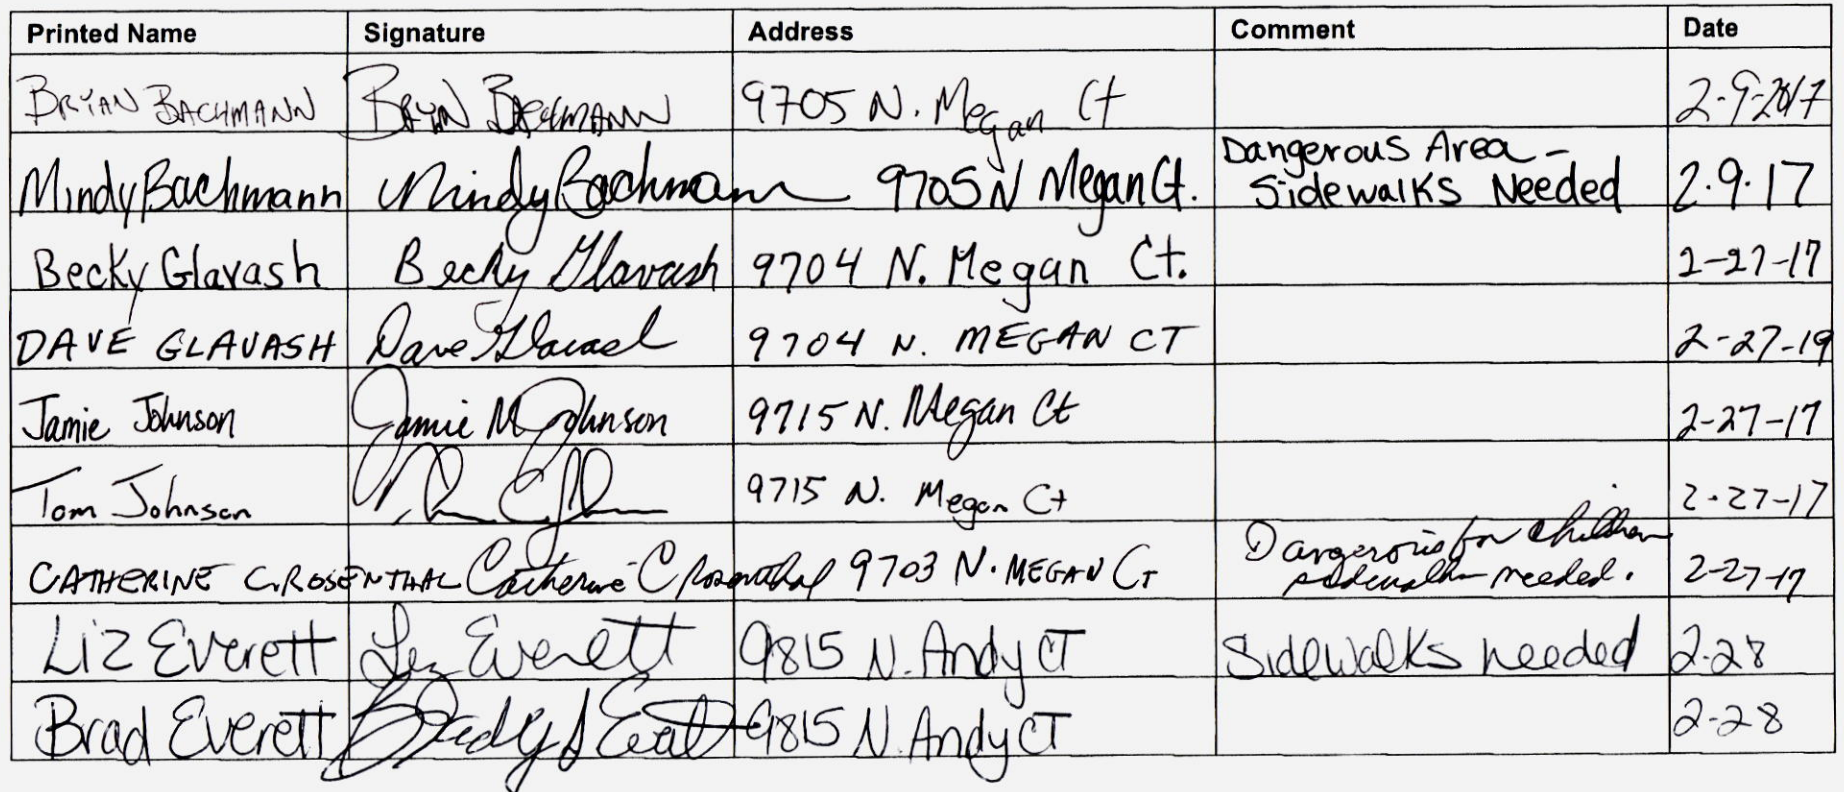 Printed Name Signature Address Comment Date
BRIAN BACHMANN BRYAN BACHMANN 9705 N. Megan Ct 2-9-2017
Mindy Bachmann Mindy Bachmann 9705 N Megan Ct. Dangerous Area - 2.9.17
Sidewalks Needed
Becky Glavash Becky Glavash 9704 N. Megan Ct. 2-27-17
DAVE GLAVASH Dave Glavash 9704 N. MEGAN CT 2-27-19
Jamie Johnson Jamie M Johnson 9715 N. Megan Ct 2-27-17
Tom Johnson 9715 N. Megan Ct 2-27-17
CATHERINE C. ROSENTHAL Catherine C Rosenthal 9703 N. MEGAN CT Dangerous for children 2-27-17
needed.
Liz Everett Liz Everett 9815 N. Andy CT Sidewalks needed 2-28
Brad Everett 9815 N. Andy CT 2-28